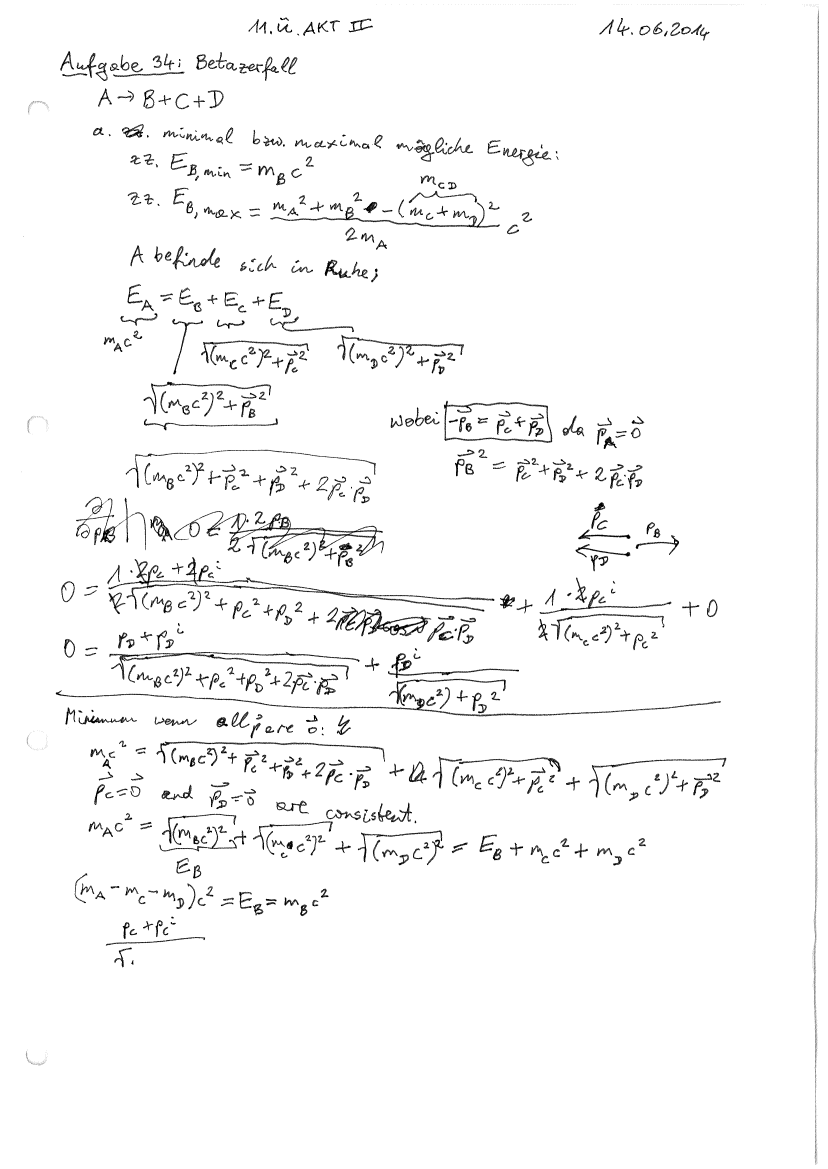 11. Ü. AKT II 14.06.2014
Aufgabe 34: Betazerfall
A → B + C + D
a. minimal bzw. maximal mögliche Energie:
zz. E_{B,min} = m_B c²
m_{CD}
zz. E_{B,max} = (m_A² + m_B² - (m_C + m_D)²) / (2m_A) c²
A befinde sich in Ruhe;
E_A = E_B + E_C + E_D
m_A c² √((m_C c²)² + p⃗_C²) √((m_D c²)² + p⃗_D²)
√((m_B c²)² + p⃗_B²)
wobei -p⃗_B = p⃗_C + p⃗_D da p⃗_A = 0⃗
√((m_B c²)² + p⃗_C² + p⃗_D² + 2p⃗_C·p⃗_D) p⃗_B² = p⃗_C² + p⃗_D² + 2p⃗_C·p⃗_D
p⃗_C p_B
p_D
0 = (1·2p_C + 2p_C^i) / (2√((m_B c²)² + p_C² + p_D² + 2 p⃗_C·p⃗_D)) + (1·2p_C^i) / (2√((m_C c²)² + p_C²)) + 0
0 = (p_D + p_D^i) / √((m_B c²)² + p_C² + p_D² + 2p⃗_C·p⃗_D) + p_D^i / √((m_D c²) + p_D²)
Minimum wenn all p⃗ are 0⃗: ↯
m_A c² = √((m_B c²)² + p⃗_C² + p⃗_D² + 2p⃗_C·p⃗_D) + √((m_C c²)² + p⃗_C²) + √((m_D c²)² + p⃗_D²)
p⃗_C = 0⃗ and p⃗_D = 0⃗ are consistent.
m_A c² = √((m_B c²)²) + √((m_C c²)²) + √((m_D c²)²) = E_B + m_C c² + m_D c²
E_B
(m_A - m_C - m_D)c² = E_B = m_B c²
(p_C + p_C^i) / √.